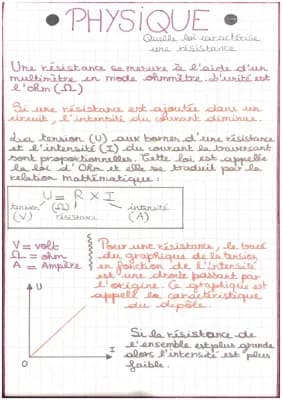 PHYSIQUE
Quelle loi caractérise
une résistance
Une résistance se mesure à l'aide d'un
multimètre en mode ohmmètre. L'unité est
l'ohm (Ω)
Si une résistance est ajoutée dans un
circuit, l'intensité du courant diminue.
La tension (U) aux bornes d'une résistance
et l'intensité (I) du courant la traversant
sont proportionnelles. Cette loi est appelée
la loi d'Ohm et elle se traduit par la
relation mathématique :
U = R × I
tension (Ω) intensité
(V) résistance (A)
V = volt
Ω = ohm
A = Ampère
Pour une résistance, le tracé
du graphique de la tension
en fonction de l'intensité
est une droite passant par
l'origine. Ce graphique est
appelé la caractéristique
du dipôle.
U
I
0
Si la résistance de
l'ensemble est plus grande
alors l'intensité est plus
faible.